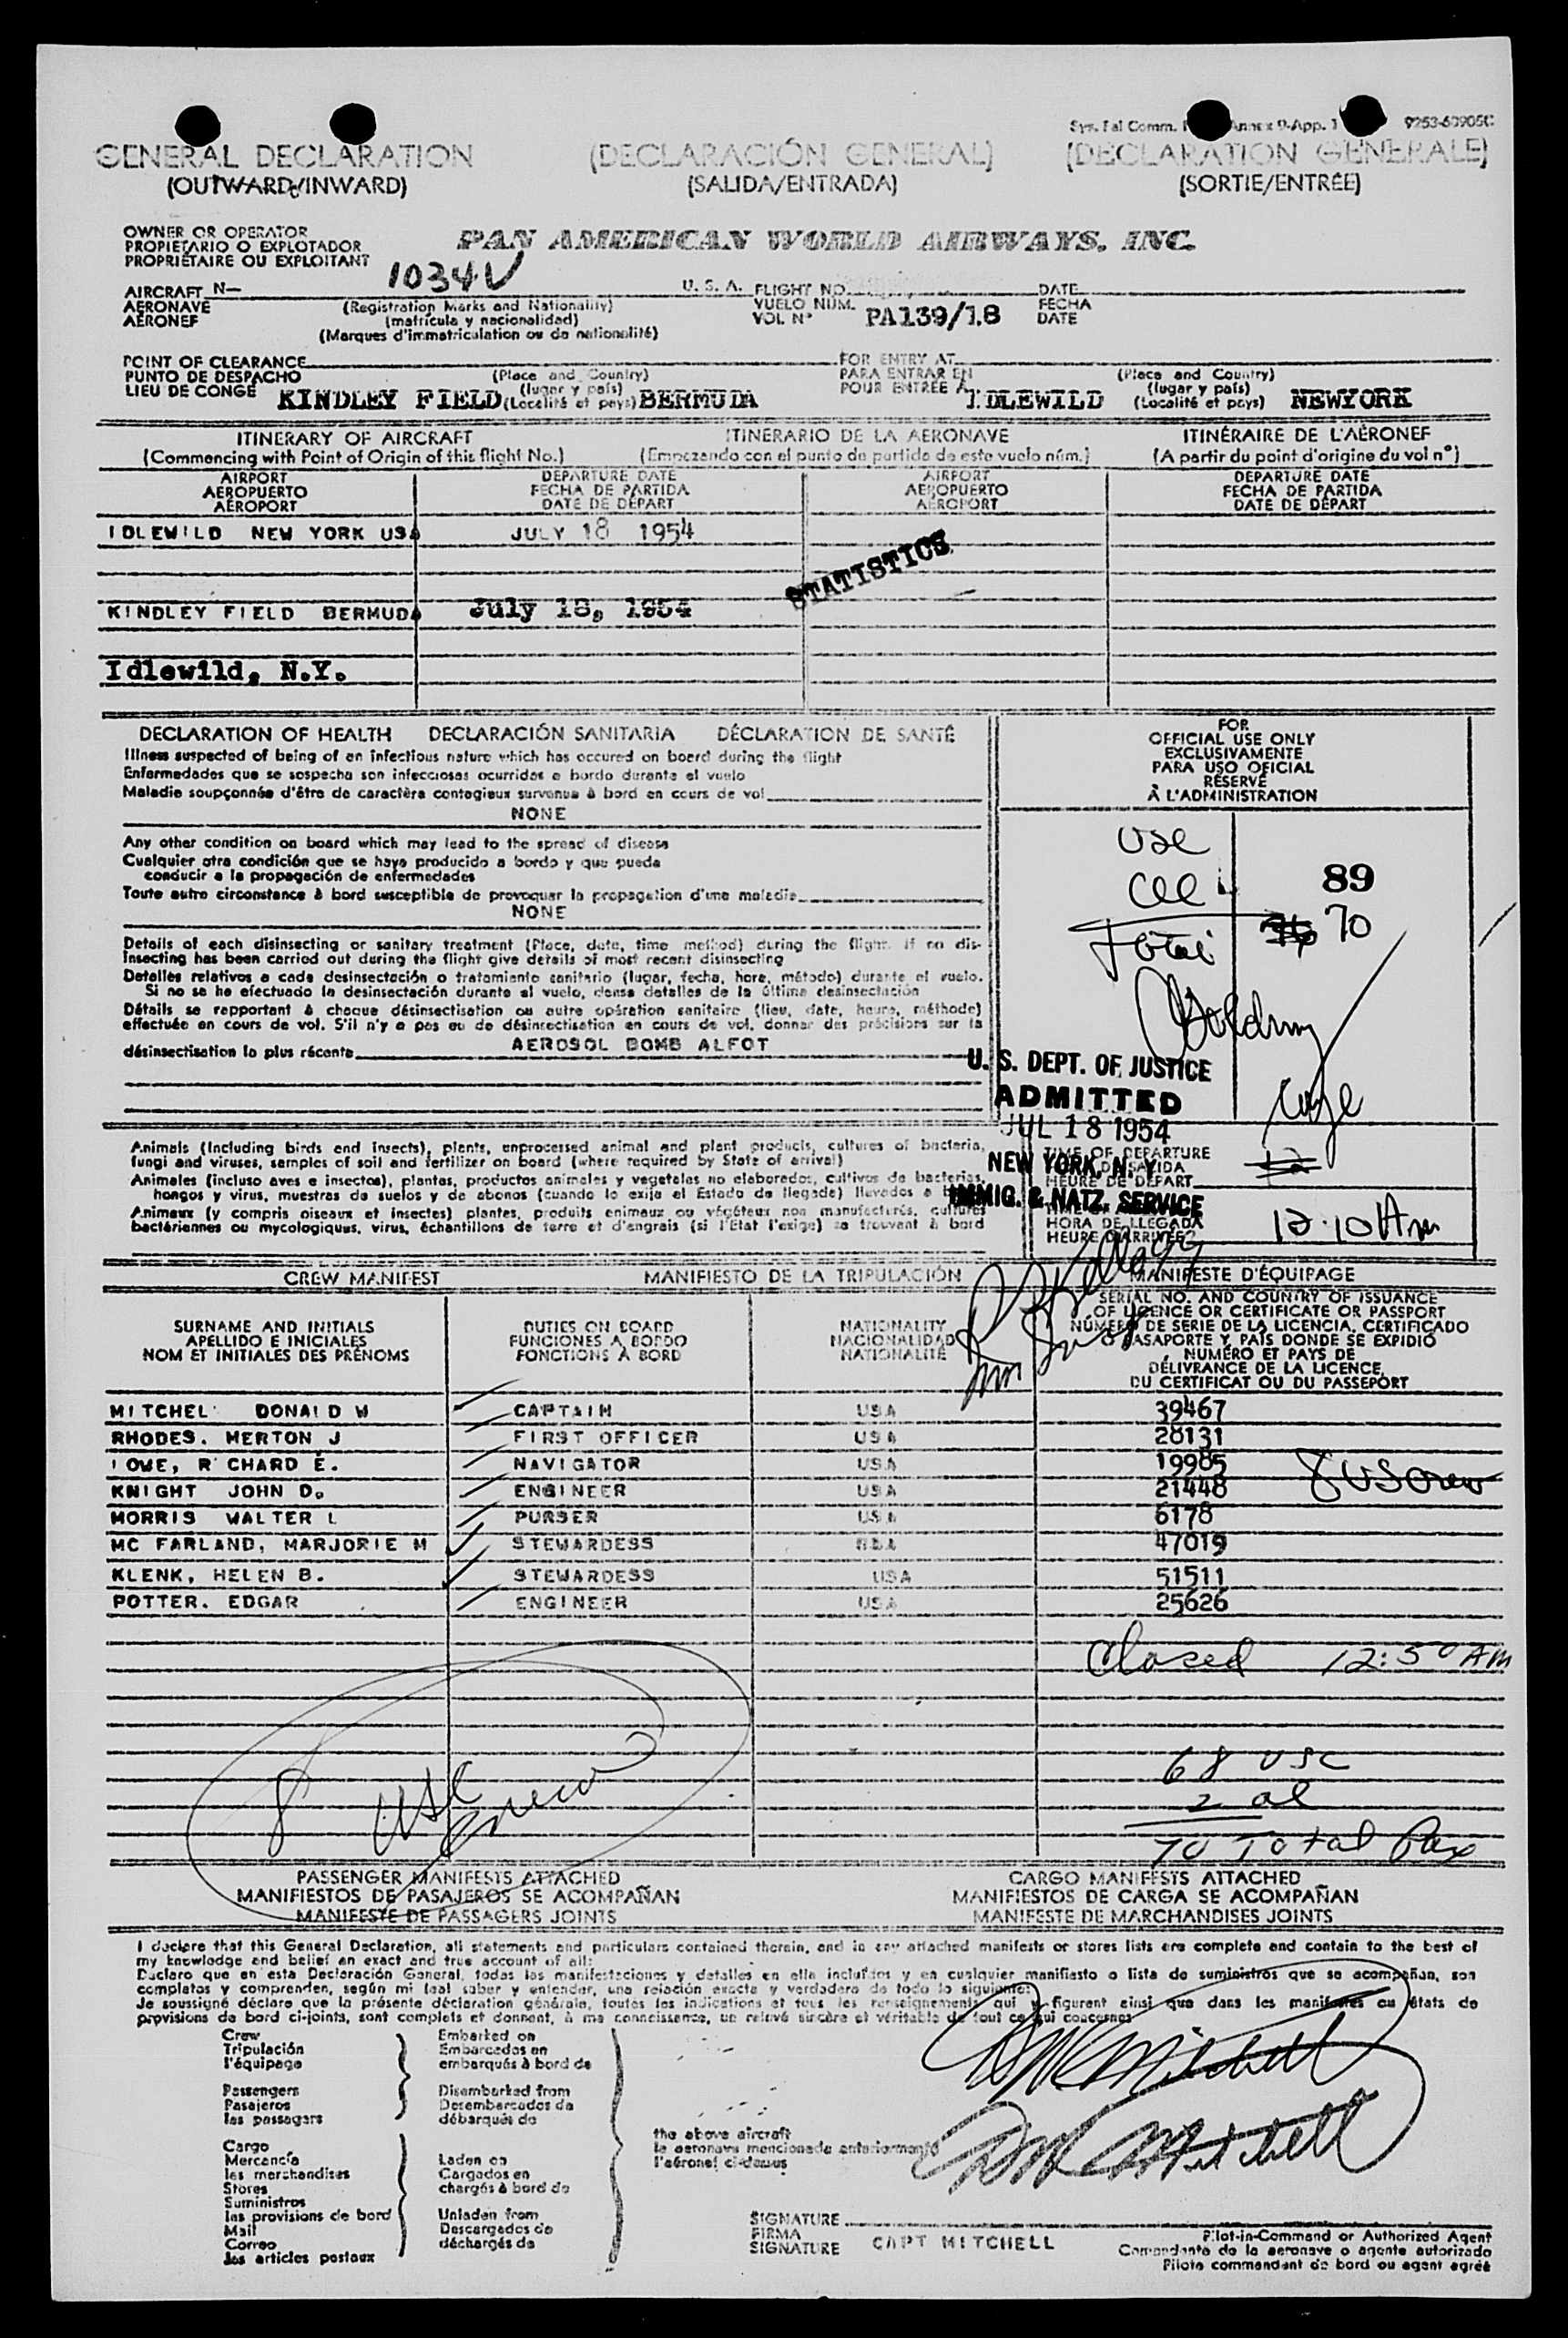 Sys. Fal Comm. Annex 9-App. 1 9253-60905C
GENERAL DECLARATION (DECLARACIÓN GENERAL) (DECLARATION GENERALE)
(OUTWARD/INWARD) (SALIDA/ENTRADA) (SORTIE/ENTRÉE)
OWNER OR OPERATOR
PROPIETARIO O EXPLOTADOR
PROPRIÉTAIRE OU EXPLOITANT
PAN AMERICAN WORLD AIRWAYS, INC.
AIRCRAFT N- 1034V U. S. A. FLIGHT NO. DATE
AERONAVE (Registration Marks and Nationality) VUELO NÚM. PA139/18 FECHA
AÉRONEF (matrícula y nacionalidad) VOL N° DATE
(Marques d'immatriculation ou de nationalité)
POINT OF CLEARANCE FOR ENTRY AT
PUNTO DE DESPACHO (Place and Country) PARA ENTRAR EN (Place and Country)
LIEU DE CONGÉ KINDLEY FIELD (lugar y país) (Localité et pays) BERMUDA POUR ENTRÉE À IDLEWILD (lugar y país) (Localité et pays) NEWYORK
ITINERARY OF AIRCRAFT ITINERARIO DE LA AERONAVE ITINÉRAIRE DE L'AÉRONEF
(Commencing with Point of Origin of this flight No.) (Empezando con el punto de partida de este vuelo núm.) (A partir du point d'origine du vol n°)
AIRPORT DEPARTURE DATE AIRPORT DEPARTURE DATE
AEROPUERTO FECHA DE PARTIDA AEROPUERTO FECHA DE PARTIDA
AÉROPORT DATE DE DÉPART AÉROPORT DATE DE DÉPART
IDLEWILD NEW YORK USA JULY 18 1954
STATISTICS
KINDLEY FIELD BERMUDA July 18, 1954
Idlewild, N.Y.
DECLARATION OF HEALTH DECLARACIÓN SANITARIA DÉCLARATION DE SANTÉ
Illness suspected of being of an infectious nature which has occured on board during the flight
Enfermedades que se sospecha son infecciosas ocurridas a bordo durante el vuelo
Maladie soupçonnée d'être de caractère contagieux survenue à bord en cours de vol
NONE
Any other condition on board which may lead to the spread of disease
Cualquier otra condición que se haya producido a bordo y que pueda
conducir a la propagación de enfermedades
Toute autre circonstance à bord susceptible de provoquer la propagation d'une maladie
NONE
Details of each disinsecting or sanitary treatment (Place, date, time method) during the flight. If no dis-
insecting has been carried out during the flight give details of most recent disinsecting
Detalles relativos a cada desinsectación o tratamiento sanitario (lugar, fecha, hora, método) durante el vuelo.
Si no se ha efectuado la desinsectación durante el vuelo, dense detalles de la última desinsectación
Détails se rapportant à chaque désinsectisation ou autre opération sanitaire (lieu, date, heure, méthode)
effectuée en cours de vol. S'il n'y a pas eu de désinsectisation en cours de vol, donner des précisions sur la
désinsectisation la plus récente AEROSOL BOMB ALFOT
FOR
OFFICIAL USE ONLY
EXCLUSIVAMENTE
PARA USO OFICIAL
RÉSERVÉ
À L'ADMINISTRATION
USC
89
Total 70
U. S. DEPT. OF JUSTICE
ADMITTED
JUL 18 1954
NEW YORK, N. Y.
IMMIG. & NATZ. SERVICE
Animals (Including birds and insects), plants, unprocessed animal and plant products, cultures of bacteria,
fungi and viruses, samples of soil and fertilizer on board (where required by State of arrival)
Animales (incluso aves e insectos), plantas, productos animales y vegetales no elaborados, cultivos de bacterias,
hongos y virus, muestras de suelos y de abonos (cuando lo exija el Estado de llegada) llevados a bordo
Animaux (y compris oiseaux et insectes) plantes, produits animaux ou végéteux non manufacturés, cultures
bactériennes ou mycologiques, virus, échantillons de terre et d'engrais (si l'État l'exige) se trouvant à bord
TIME OF DEPARTURE
HEURE DE DÉPART
HORA DE LLEGADA
HEURE D'ARRIVÉE 12:10 Am
CREW MANIFEST MANIFIESTO DE LA TRIPULACIÓN MANIFESTE D'ÉQUIPAGE
SURNAME AND INITIALS DUTIES ON BOARD NATIONALITY
APELLIDO E INICIALES FUNCIONES A BORDO NACIONALIDAD
NOM ET INITIALES DES PRÉNOMS FONCTIONS À BORD NATIONALITÉ
SERIAL NO. AND COUNTRY OF ISSUANCE
OF LICENCE OR CERTIFICATE OR PASSPORT
NÚMERO DE SERIE DE LA LICENCIA, CERTIFICADO
O PASAPORTE Y PAÍS DONDE SE EXPIDIÓ
NUMÉRO ET PAYS DE
DÉLIVRANCE DE LA LICENCE,
DU CERTIFICAT OU DU PASSEPORT
MITCHEL DONALD W CAPTAIN USA 39467
RHODES. MERTON J FIRST OFFICER USA 28131
LOWE, RICHARD E. NAVIGATOR USA 19985
8 US Crew
KNIGHT JOHN D. ENGINEER USA 21448
MORRIS WALTER L PURSER USA 6178
MC FARLAND, MARJORIE M STEWARDESS USA 47019
KLENK, HELEN B. STEWARDESS USA 51511
POTTER. EDGAR ENGINEER USA 25626
Closed 12:50 AM
68 USC
8 USC crew
2 al
70 Total Pax
PASSENGER MANIFESTS ATTACHED CARGO MANIFESTS ATTACHED
MANIFIESTOS DE PASAJEROS SE ACOMPAÑAN MANIFIESTOS DE CARGA SE ACOMPAÑAN
MANIFESTE DE PASSAGERS JOINTS MANIFESTE DE MARCHANDISES JOINTS
I declare that this General Declaration, all statements and particulars contained therein, and in any attached manifests or stores lists are complete and contain to the best of
my knowledge and belief an exact and true account of all:
Declaro que en esta Declaración General, todas las manifestaciones y detalles en ella incluídos y en cualquier manifiesto o lista de suministros que se acompañan, son
completos y comprenden, según mi leal saber y entender, una relación exacta y verdadera de todo lo siguiente:
Je soussigné déclare que la présente déclaration générale, toutes les indications et tous les renseignements qui y figurent ainsi que dans les manifestes ou états de
provisions de bord ci-joints, sont complets et donnent, à ma connaissance, un relevé sincère et véritable de tout ce qui concerne:
Crew Embarked on
Tripulación Embarcados en
l'équipage embarqués à bord de
DW Mitchell
Passengers Disembarked from
Pasajeros Desembarcados de
les passagers débarqués de
the above aircraft
la aeronave mencionada anteriormente
l'aéronef ci-dessus
DW Mitchell
Cargo
Mercancía Laden on
les marchandises Cargados en
Stores chargés à bord de
Suministros
les provisions de bord Unladen from
Mail Descargados de
Correo déchargés de
les articles postaux
SIGNATURE
FIRMA CAPT MITCHELL
SIGNATURE
Pilot-in-Command or Authorized Agent
Comandante de la aeronave o agente autorizado
Pilote commandant de bord ou agent agréé